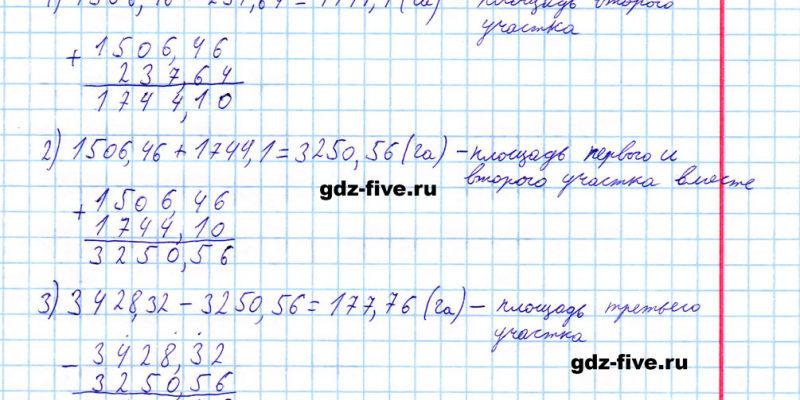 1) 1506,46 + 237,64 = 1744,1 (га) – площадь второго
участка
+ 1506,46
237,64
1744,10
2) 1506,46 + 1744,1 = 3250,56 (га) – площадь первого и
второго участка вместе
gdz-five.ru
+ 1506,46
1744,10
3250,56
3) 3428,32 – 3250,56 = 177,76 (га) – площадь третьего
участка
– 3428,32
3250,56
gdz-five.ru